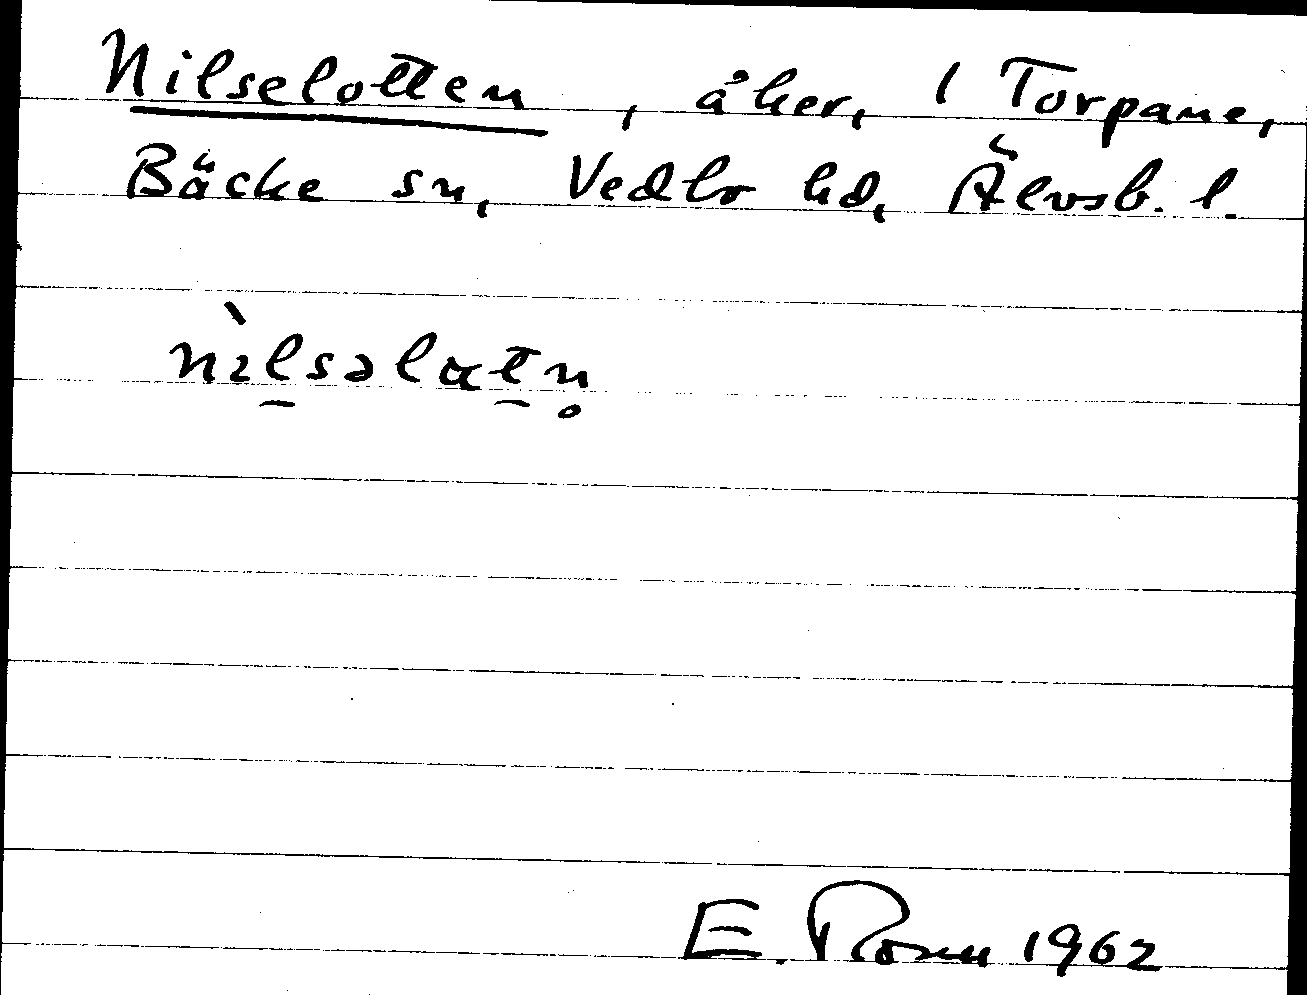 Nilselotten, åker, 1 Torpane,
Bäcke sn, Vedbo hd, Älvsb. l.
nìlsəlɑtn̥
E. Rosen 1962